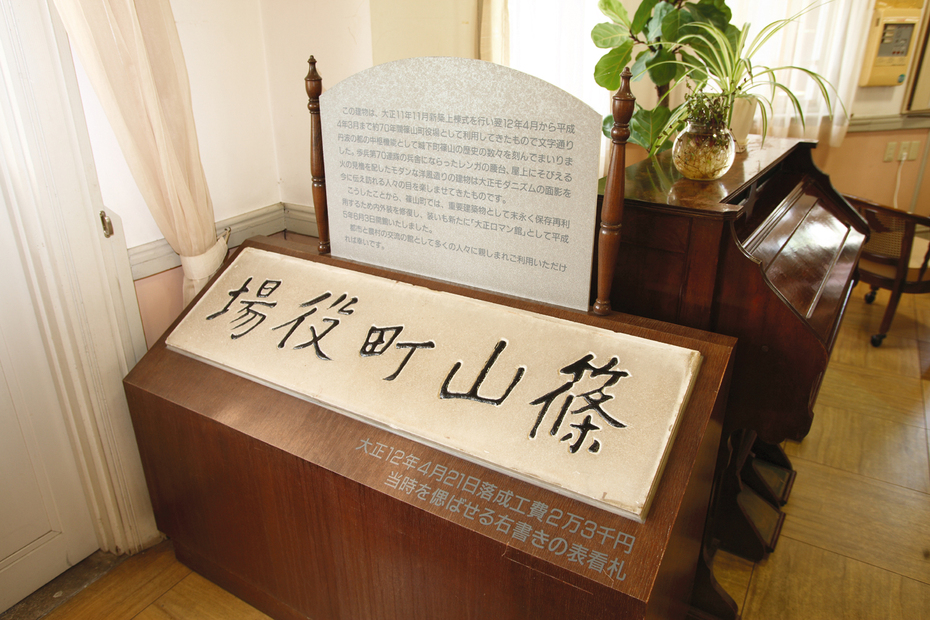 この建物は、大正11年11月新築上棟式を行い翌12年4月から平成
4年3月まで約70年間篠山町役場として利用してきたもので文字通り
丹波の都の中枢機能として城下町篠山の歴史の数々を刻んでまいりま
した。歩兵第70連隊の兵舎にならったレンガの腰台、屋上にそびえる
火の見櫓を配したモダンな洋風造りの建物は大正モダニズムの面影を
今に伝え訪れる人々の目を楽しませてきたものです。
こうしたことから、篠山町では、重要建築物として末永く保存再利
用するため内外装を修復し、装いも新たに「大正ロマン館」として平成
5年6月3日開館いたしました。
都市と農村の交流の館として多くの人々に親しまれご利用いただけ
れば幸いです。
場役町山篠
大正12年4月21日落成工費2万3千円
当時を偲ばせる右書きの表看札